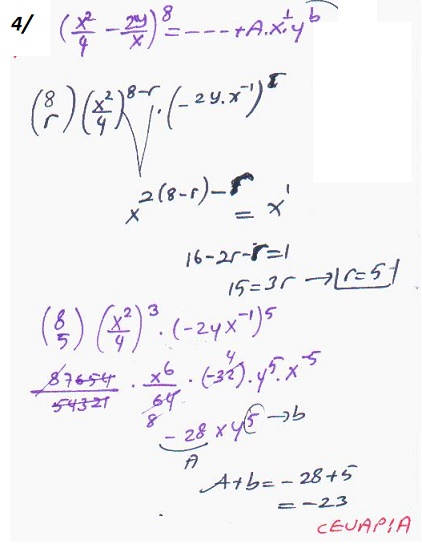 4/ (x²/4 - 2y/x)⁸ = ---- + A.x¹.y^b
(8 r) (x²/4)^8-r . (-2y.x⁻¹)^r
x^2(8-r)-r = x¹
16-2r-r=1
15=3r → r=5
(8 5) (x²/4)³ . (-2yx⁻¹)⁵
87654/54321 . x⁶/64 . (-32).y⁵.x⁻⁵
4
8
-28 x y⁵ → b
A
A+b = -28+5
= -23
CEVAP/A